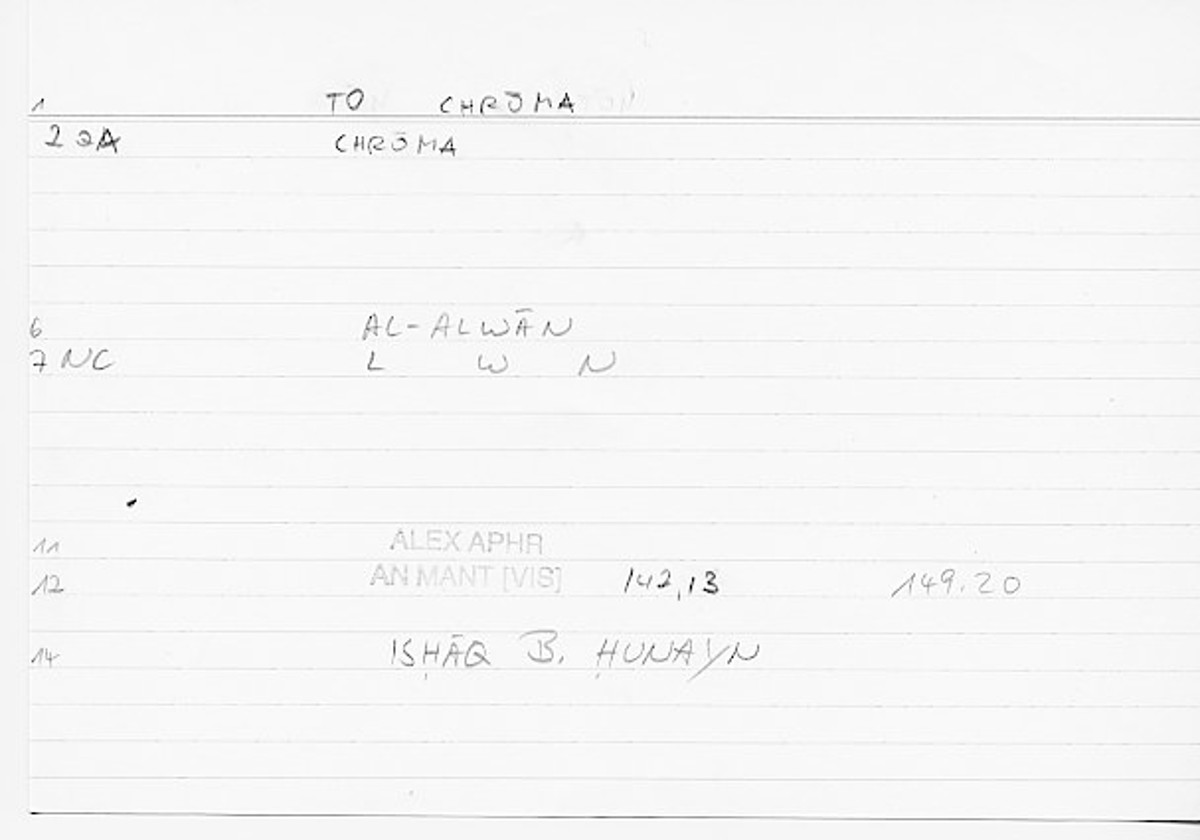 1 TO CHRŌMA
2 2A CHRŌMA
6 AL-ALWĀN
7 NC L W N
11 ALEX APHR
12 AN MANT [VIS] 142,13 149.20
14 ISḤĀQ B. ḤUNAYN